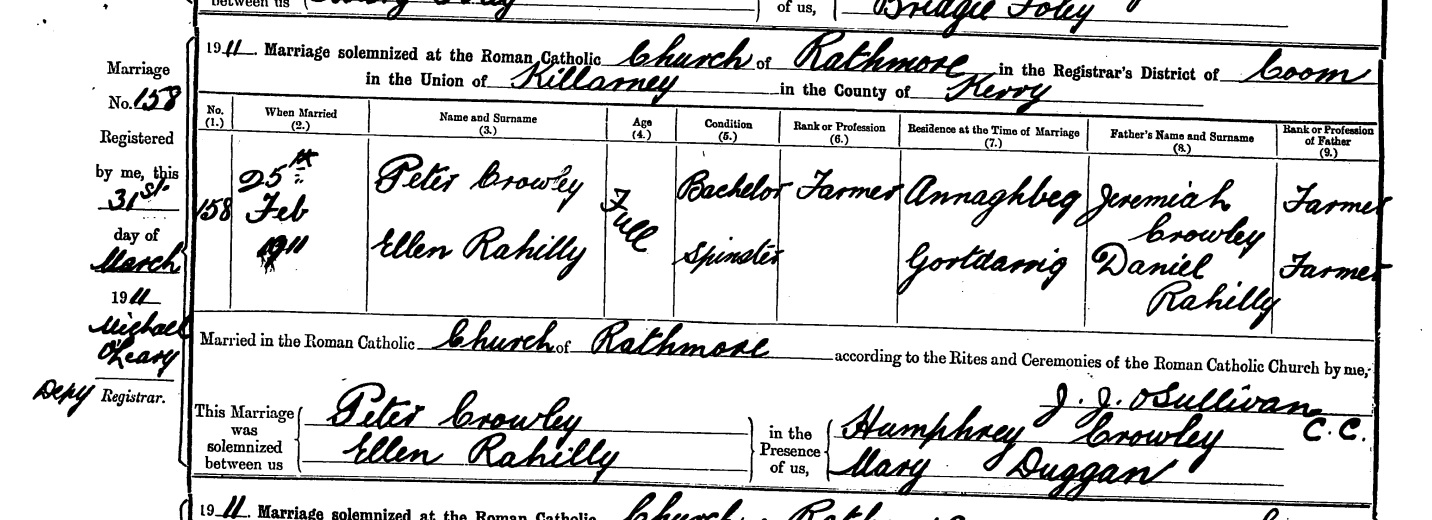 between us
of us,
Bridgie Foley
1911. Marriage solemnized at the Roman Catholic Church of Rathmore in the Registrar's District of Coom
in the Union of Killarney in the County of Kerry
Marriage
No. 158
Registered
by me, this
31st
day of
March
1911
Michael
O'Leary
Depy Registrar.
No. When Married Name and Surname Age Condition Rank or Profession Residence at the Time of Marriage Father's Name and Surname Rank or Profession of Father
(1.) (2.) (3.) (4.) (5.) (6.) (7.) (8.) (9.)
158 25th Feb 1911 Full
Peter Crowley Bachelor Farmer Annaghbeg Jeremiah Crowley Farmer
Ellen Rahilly Spinster Gortdarrig Daniel Rahilly Farmer
Married in the Roman Catholic Church of Rathmore according to the Rites and Ceremonies of the Roman Catholic Church by me,
J. J. O'Sullivan C.C.
This Marriage was solemnized between us
Peter Crowley
Ellen Rahilly
in the Presence of us,
Humphrey Crowley
Mary Duggan
1911. Marriage solemnized at the Roman Catholic Church